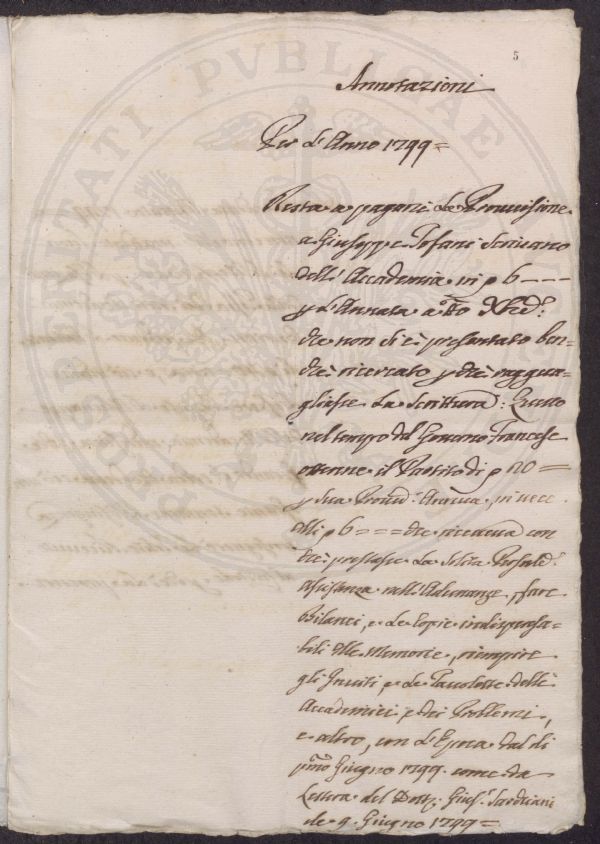 5
Annotazioni
Per l'Anno 1799=
Resta a pagarsi la Provvisione
a Giuseppe Tofani Scrivano
dell'Accademia in p 6 ----
p l'Annata a tto Xbre
che non si è presentato ben-
chè ricercato p chè raggua-
gliasse la Scrittura: Questo
nel tempo del Governo Francese
ottenne il Partito di p 20=
p sua Provvd. Annua, in vece
di p 6=== che riceveva con
che prestasse la solita Personle
Assistenza nell'Adunanze, fare
Bilanci, e le Copie indispensa-
bili alle Memorie, riempire
gli Inviti, e le Tavolette delli
Accademici, e dei Problemi,
e altro, con l'Epoca dal di
pmo Giugno 1799. come da
Lettera del Dott. Gius.
de 9. Giugno 1799=